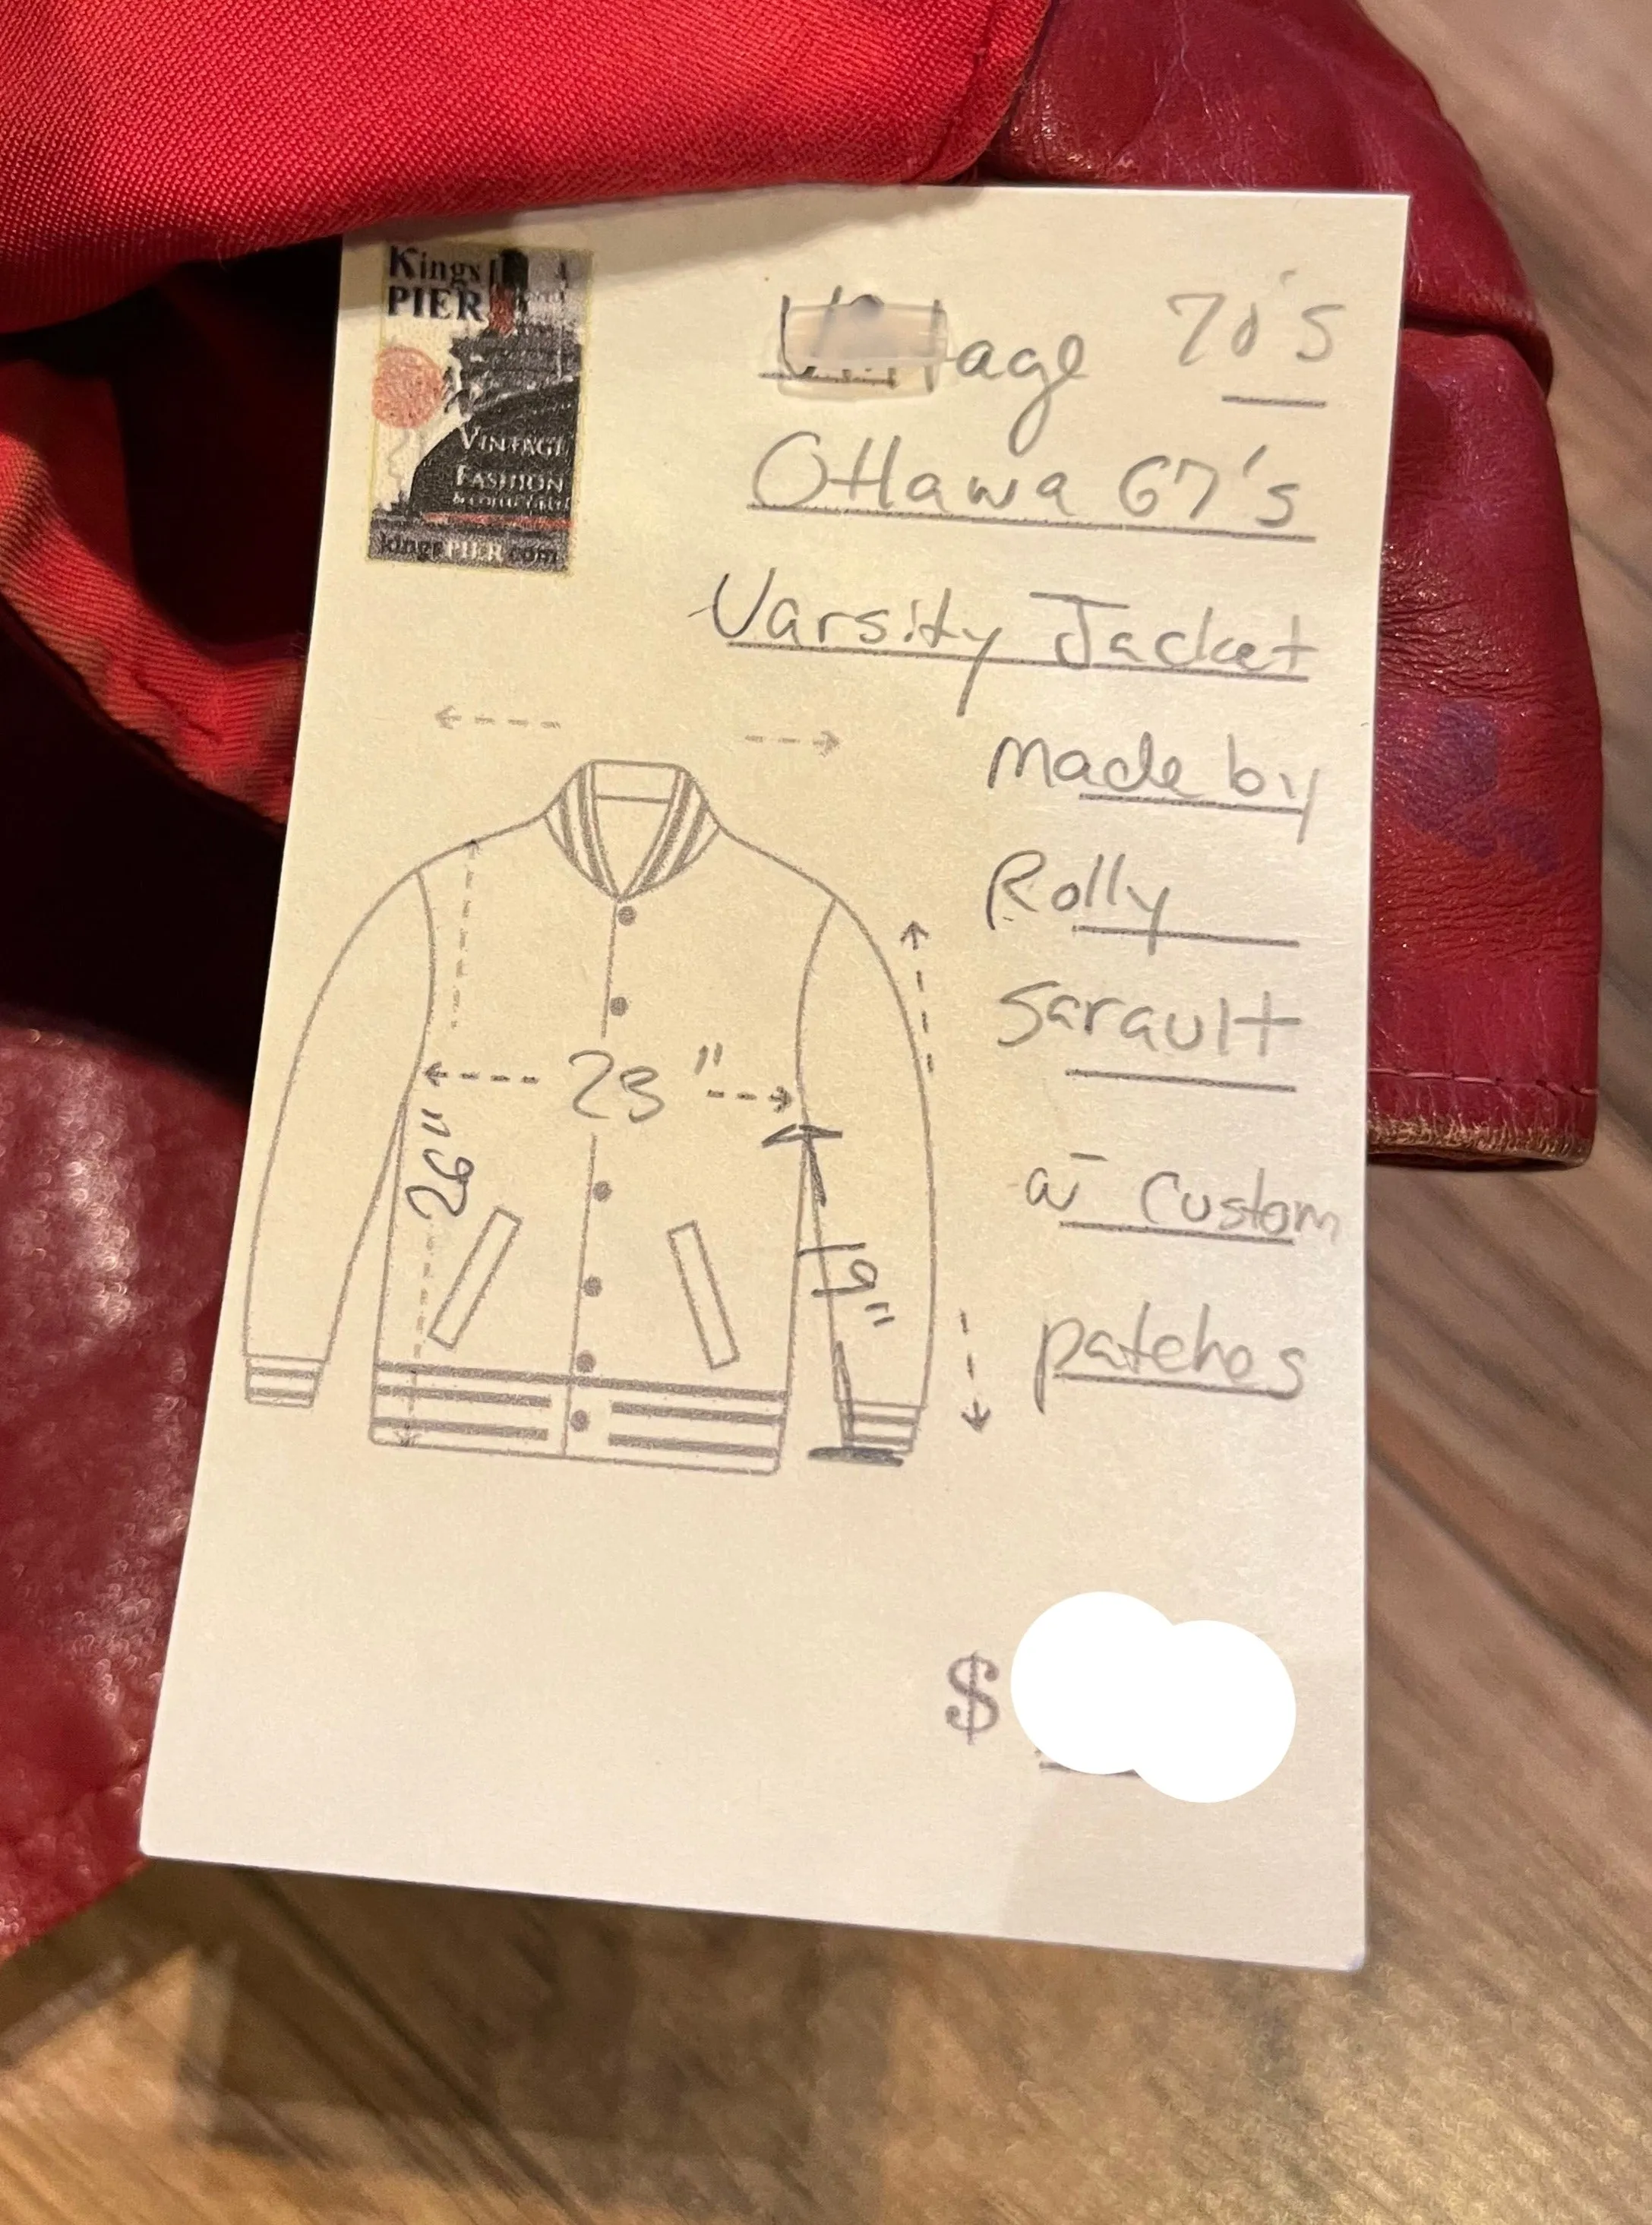 Kings
PIER
VINTAGE
FASHION
kingsPIER.com
Vintage 70's
Ottawa 67's
Varsity Jacket
made by
Rolly
Sarault
w̄ Custom
patches
23"
26"
19"
$